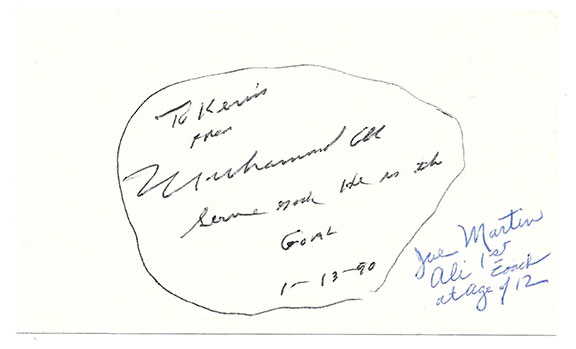 To Kevin
From
Muhammad Ali
Serve God He is the
GOAL
1-13-90
Joe Martin
Ali 1st
Coach
at age of 12